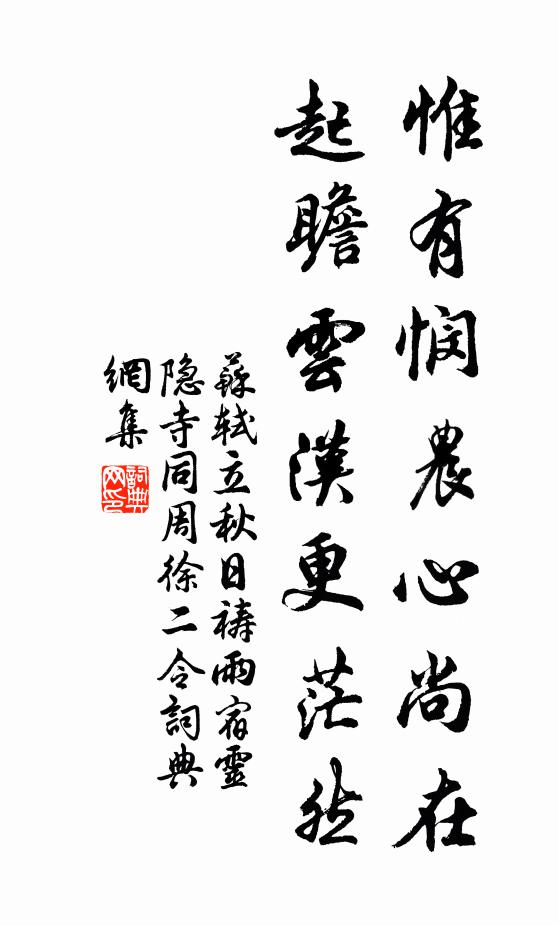 惟有悯農心尚在
起瞻雲漢更茫然
蘇轼立秋日祷雨宿靈
隐寺同周徐二令詞典
網集
詞典
网印